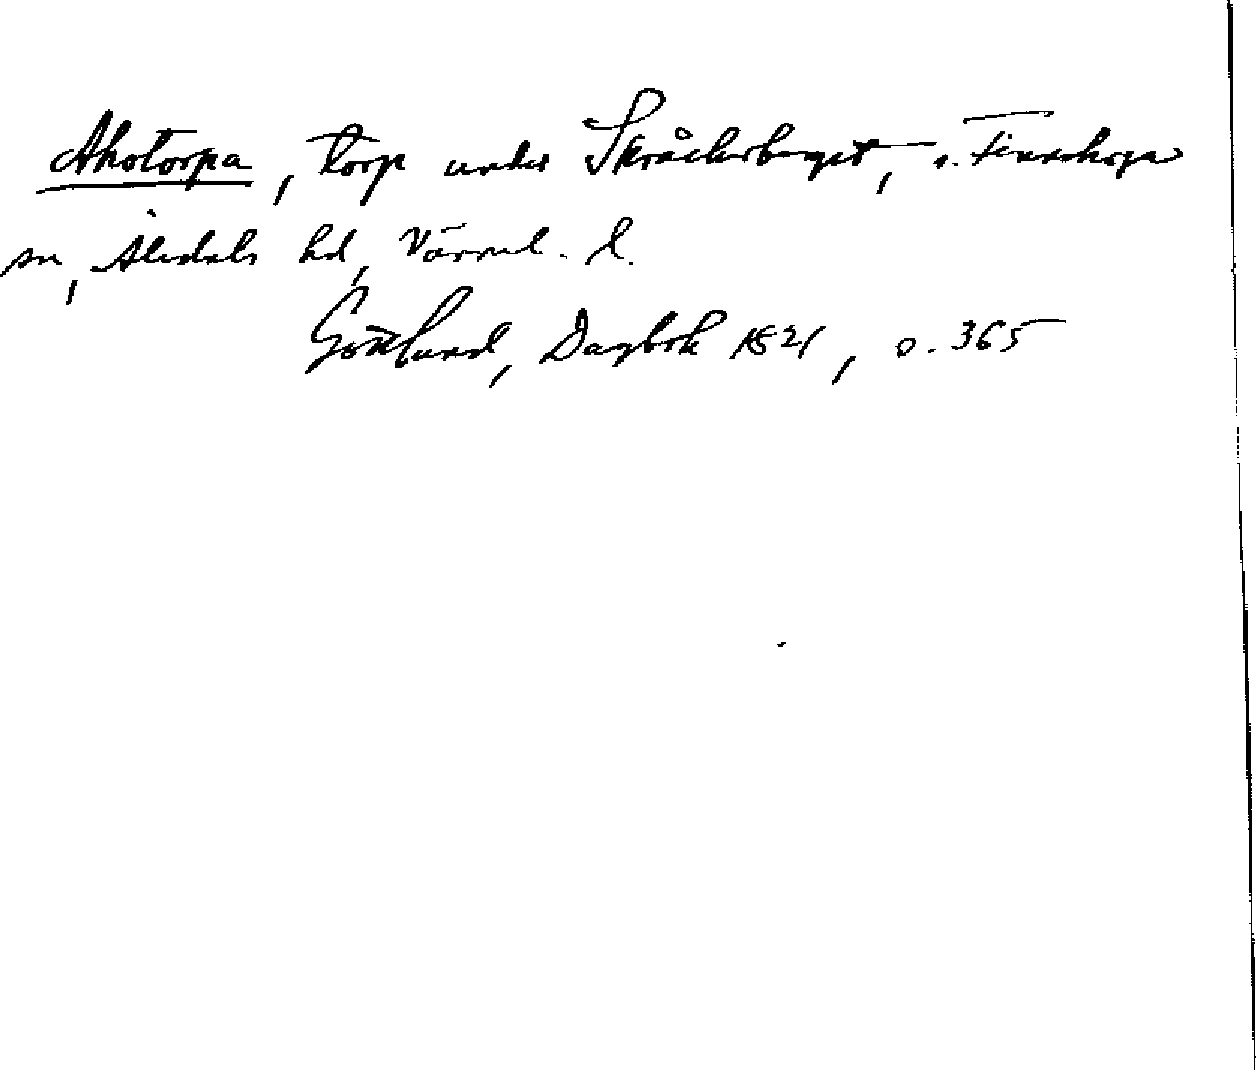 Ahotorpa, torp under Skråckerberget, s. Finnskoga
sn, Älvdals hd, Värml. l.
Gottlund, Dagbok 1821, s. 365